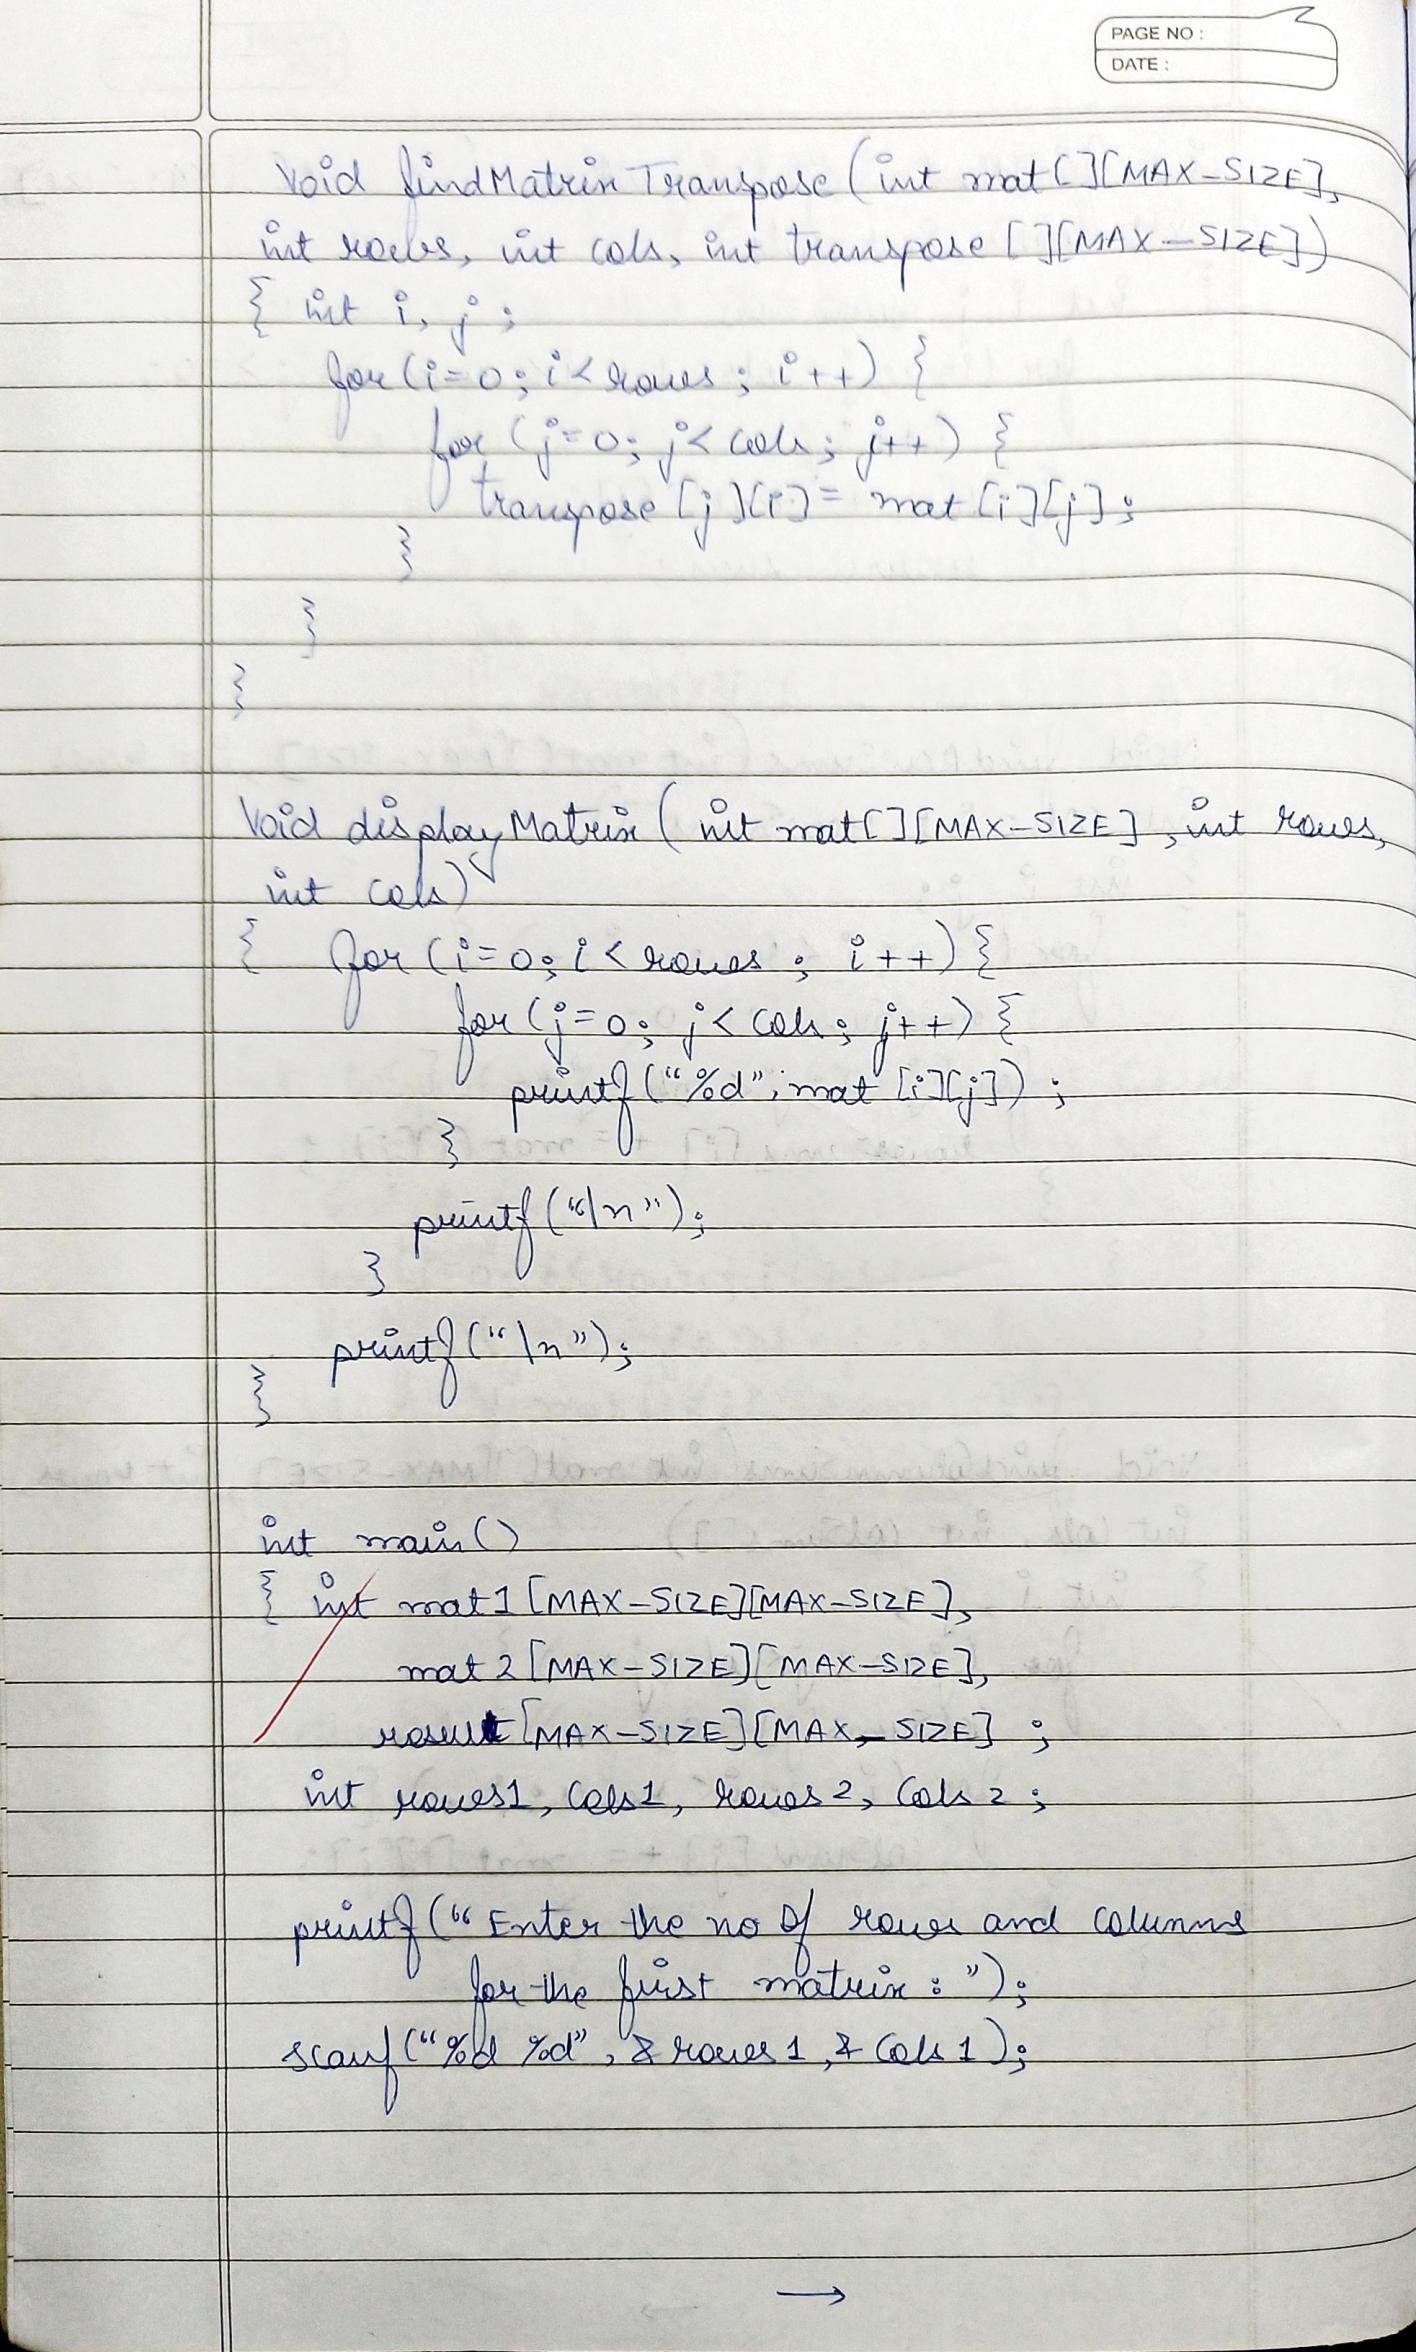 PAGE NO :
DATE :
Void findMatrixTranspose (int mat[][MAX-SIZE],
int rows, int cols, int transpose [][MAX-SIZE])
{ int i, j ;
for (i=0; i< rows ; i++) {
for (j=0; j< cols; j++) {
transpose [j][i] = mat [i][j];
}
}
}
Void displayMatrix ( int mat[][MAX-SIZE] , int rows,
int cols)
{ for (i=0; i < rows ; i++) {
for (j=0; j< cols; j++) {
printf("%d", mat [i][j]) ;
}
printf("\n");
}
printf("\n");
}
int main()
{ int mat1 [MAX-SIZE][MAX-SIZE],
mat2 [MAX-SIZE][MAX-SIZE],
result [MAX-SIZE][MAX-SIZE] ;
int rows1, Cols1, rows2, Cols2 ;
printf ("Enter the no Of rows and columns
for the first matrix : ");
scanf ("%d %d", & rows1, & Cols1);
→